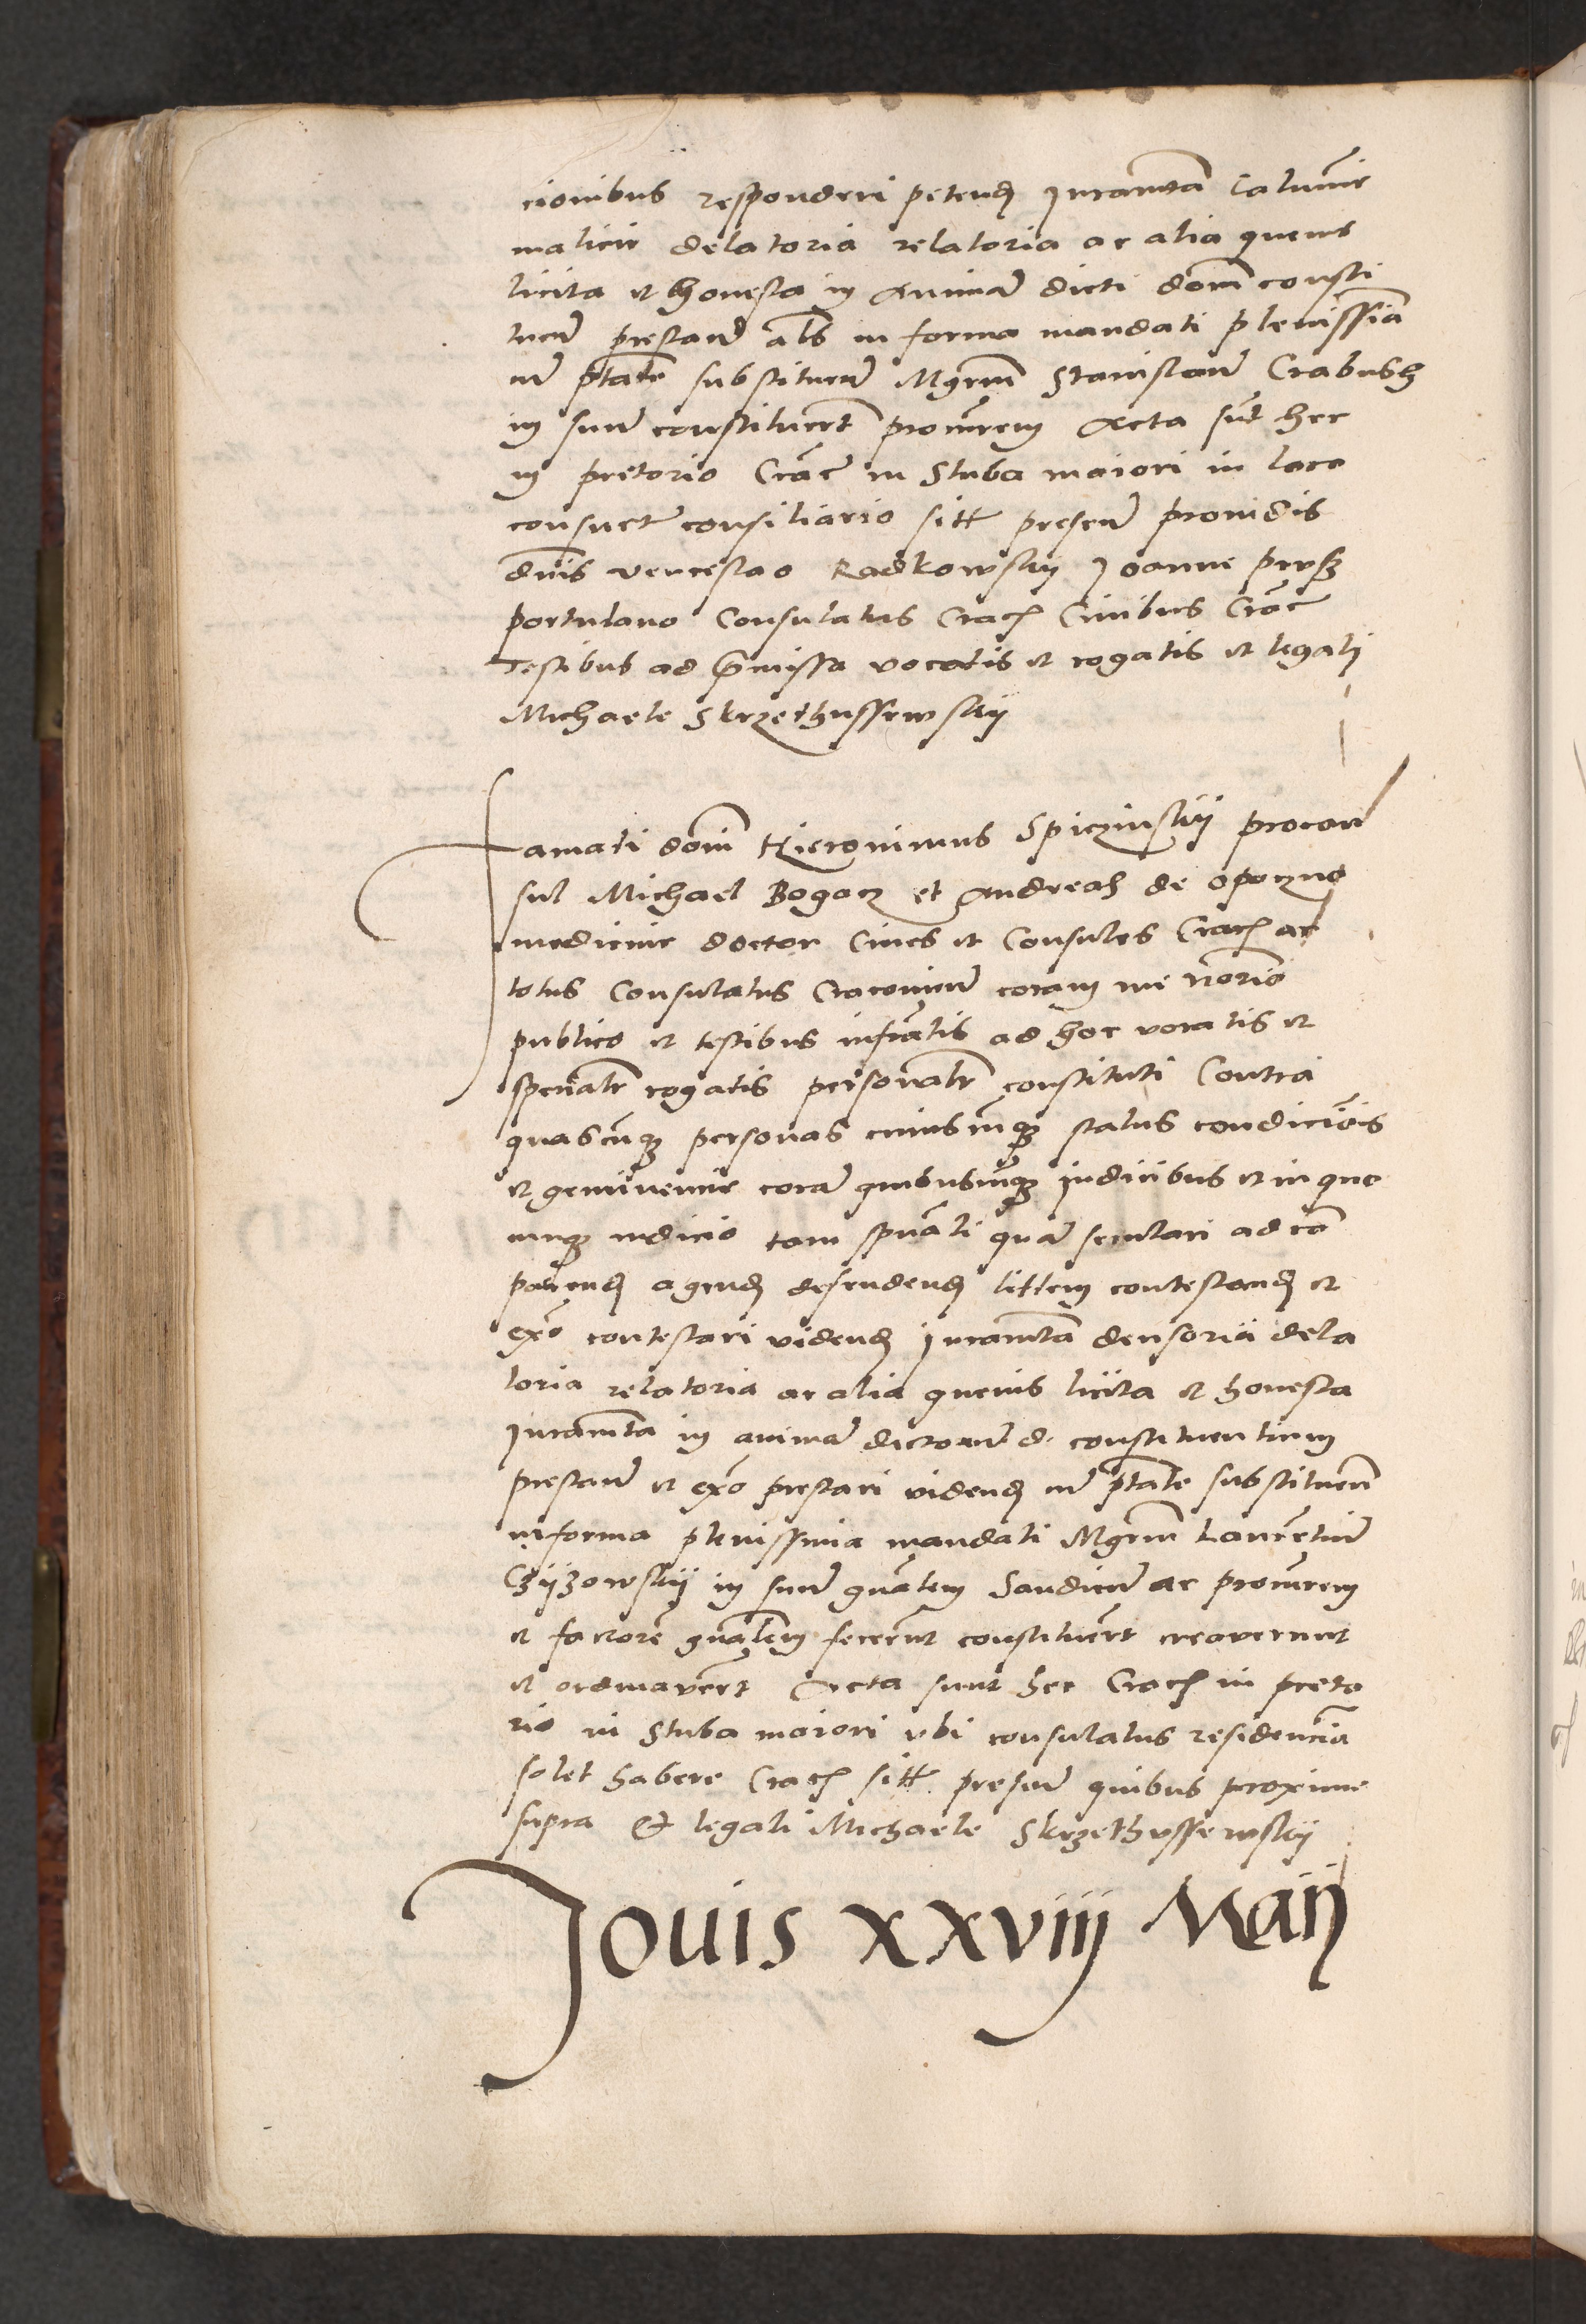 cionibus responderi petend Juramta Calumie
malicie delatoria relatoria ac alia quevis
licita et honesta in Animam dicti dom consti
tuen prestan als in forma mandati plenissia
cu ptate substituen Mgrum Stanislaum Crabusch
in suum constituert procurem Acta sut hec
in pretorio Crac in Stuba maiori in loco
consuet consiliario sitt presen providis
dnis venceslao Radkowskij Joanne prvsz
portulano Consulatus Crac Civibus Crac
Testibus ad pmissa vocatis et rogatis et legali
Michaele Skrzethussewskij
Famati dom Hieronimus Spiczinskij procon
sul Michael Bogacz et Andreas de opoczno
medicine doctor Cives et Consules Crac ac
totus Consulatus Cracovien coram me norio
publico et testibus infratis ad hoc vocatis et
specialr rogatis personalr constituti Contra
quascuq personas cuiuscuq status condiciois
et preminencie cora quibuscuq judicibus et in quo
cunq iudicio tam spuali qua seculari ad co
parend agend defendend littem contestand et
exo contestari vidend Juramta densoria dela
toria relatoria ac alia quevis licita et honesta
Juramta in anima dictorum d. constituentium
prestan et exo prestari vidend cu ptate substituen
in forma plenissima mandati Mgrum Laurentium
Czijzowskij in suum gnalem Sandicum ac procurem
et factore gnalem fecerunt constituert creaverunt
et ordinavert Acta sunt hec Crac in preto
rio in Stuba maiori vbi consulatus residencia
solet habere Crac sitt presen quibus proxime
supra & legali Michaele Skrzethvssewskij
Jouis xxviij Maij